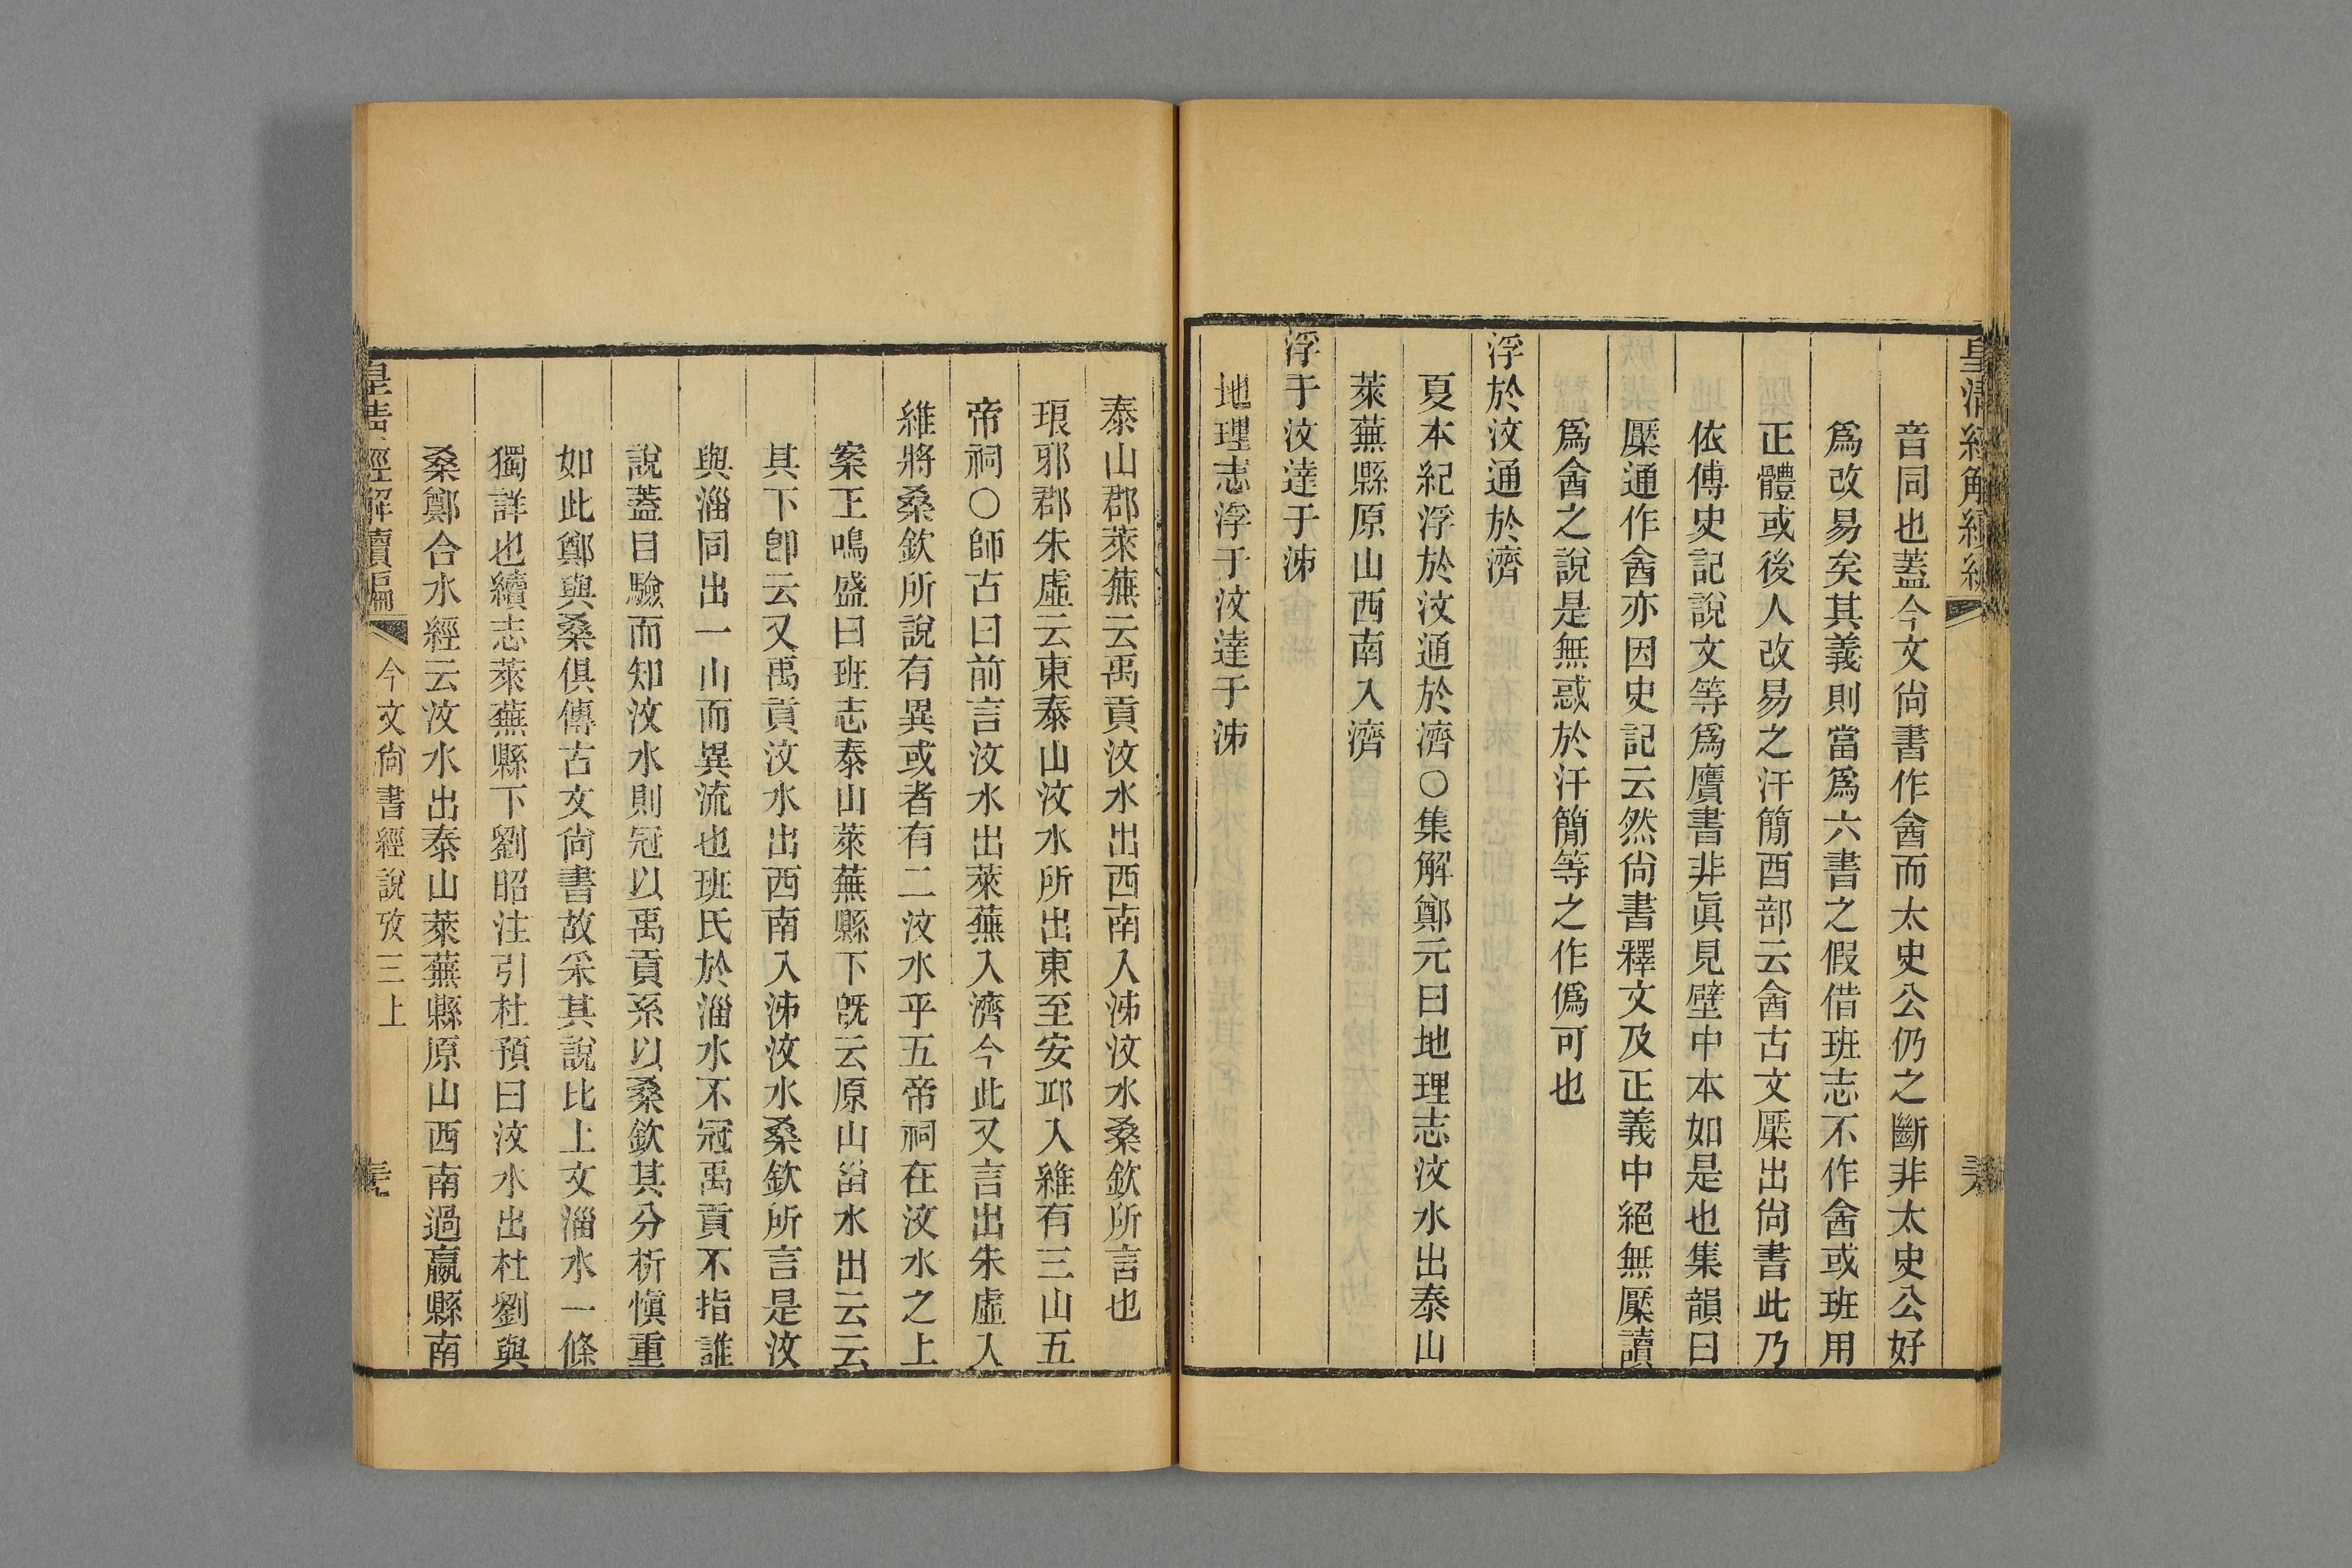 皇清經解續編
音同也蓋今文尙書作酓而太史公仍之斷非太史公好
爲改易矣其義則當爲六書之假借班志不作酓或班用
正體或後人改易之汗簡酉部云酓古文檿出尙書此乃
依傅史記說文等爲贋書非眞見壁中本如是也集韻曰
檿通作酓亦因史記云然尙書釋文及正義中絕無檿讀
爲酓之說是無惑於汗簡等之作僞可也
浮於汶通於濟
夏本紀浮於汶通於濟○集解鄭元曰地理志汶水出泰山
萊蕪縣原山西南入濟
浮于汶達于泲
地理志浮于汶達于泲
泰山郡萊蕪云禹貢汶水出西南入泲汶水桑欽所言也
琅邪郡朱虛云東泰山汶水所出東至安邱入維有三山五
帝祠○師古曰前言汶水出萊蕪入濟今此又言出朱虛入
維將桑欽所說有異或者有二汶水乎五帝祠在汶水之上
案王鳴盛曰班志泰山萊蕪縣下旣云原山甾水出云云
其下卽云又禹貢汶水出西南入泲汶水桑欽所言是汶
與淄同出一山而異流也班氏於淄水不冠禹貢不指誰
說蓋目驗而知汶水則冠以禹貢系以桑欽其分析愼重
如此鄭與桑俱傳古文尙書故采其說比上文淄水一條
獨詳也續志萊蕪縣下劉昭注引杜預曰汶水出杜劉與
桑鄭合水經云汶水出泰山萊蕪縣原山西南過嬴縣南
皇淸經解續編
今文尙書經說攷三上